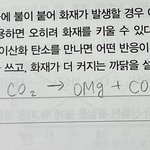 에 불이 붙어 화재가 발생할 경우 이
용하면 오히려 화재를 키울 수 있다
이산화 탄소를 만나면 어떤 반응이
쓰고, 화재가 더 커지는 까닭을 설
CO₂ → OMg + CO